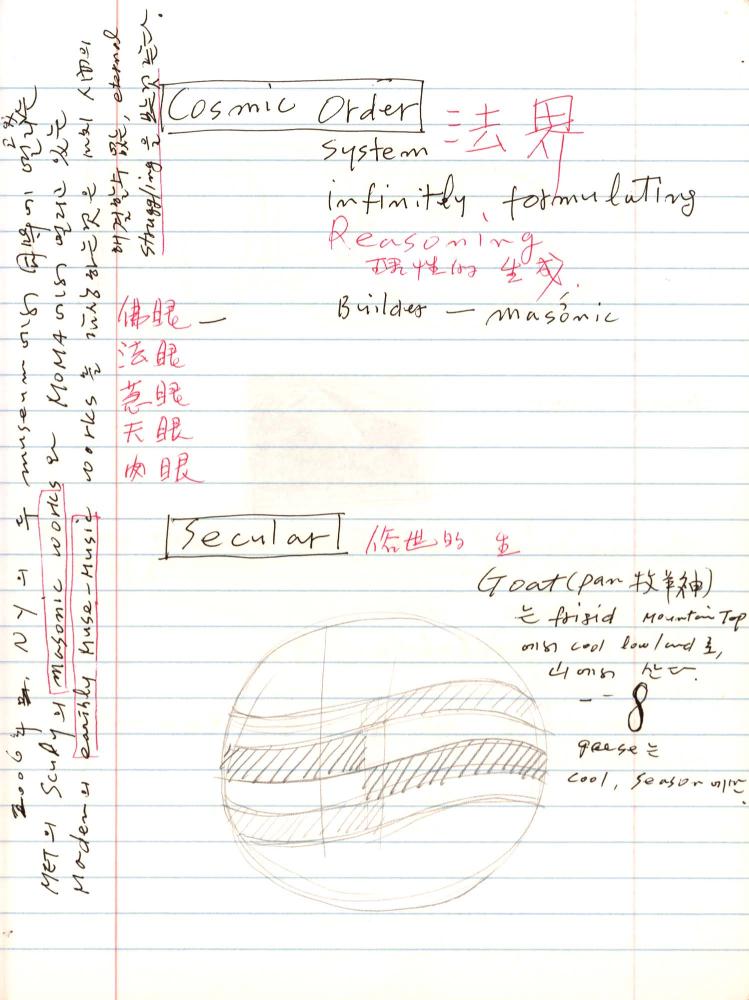 Cosmic Order
system 法界
infinitely, formulating
Reasoning
理性的 生成.
Builder — masonic
佛眼 —
法眼
慧眼
天眼
肉眼
Secular 俗世的 生
Goat (pan 牧羊神)
는 frigid Mountain Top
에서 cool lowland 로,
山에서 산다.
8
geese는
cool, season에만
2006년 NY의 두 museum에서 열리는
MET의 Study의 masonic works와 MOMA에서 열리고 있는
Modern의 earthly Muse-Music works를 하는것은
수 없는, eternal
struggling을